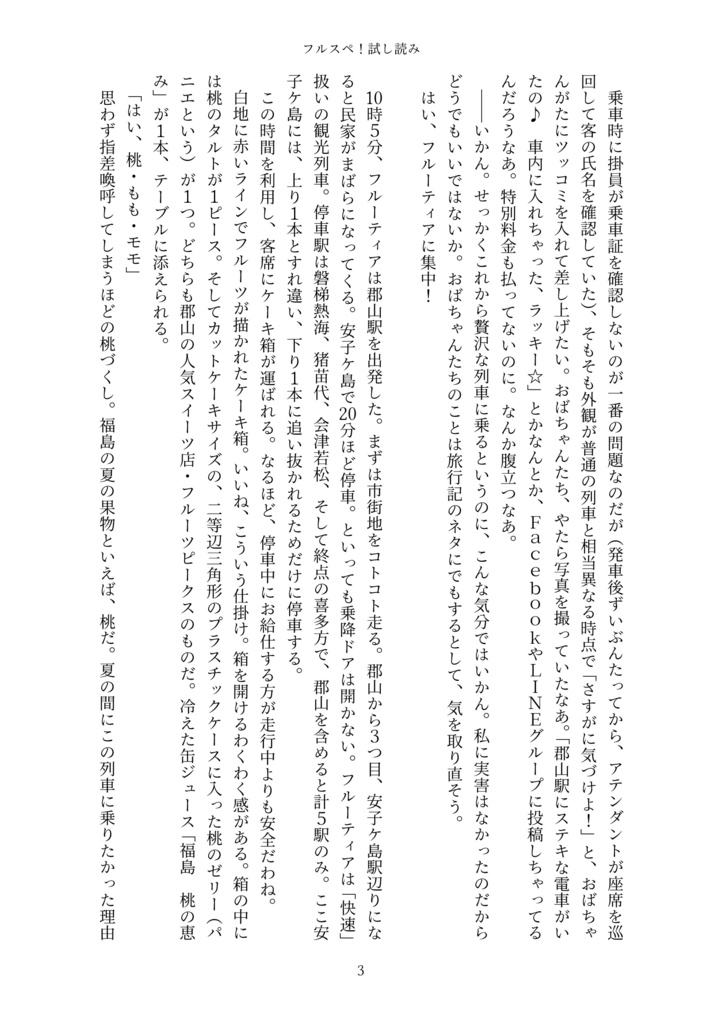 フルスペ！試し読み
　乗車時に掛員が乗車証を確認しないのが一番の問題なのだが（発車後ずいぶんたってから、アテンダントが座席を巡
回して客の氏名を確認していた）、そもそも外観が普通の列車と相当異なる時点で「さすがに気づけよ！」と、おばちゃ
んがたにツッコミを入れて差し上げたい。おばちゃんたち、やたら写真を撮っていたなあ。「郡山駅にステキな電車がい
たの♪　車内に入れちゃった、ラッキー☆」とかなんとか、ＦａｃｅｂｏｏｋやＬＩＮＥグループに投稿しちゃってる
んだろうなあ。特別料金も払ってないのに。なんか腹立つなあ。
　――いかん。せっかくこれから贅沢な列車に乗るというのに、こんな気分ではいかん。私に実害はなかったのだから
どうでもいいではないか。おばちゃんたちのことは旅行記のネタにでもするとして、気を取り直そう。
　はい、フルーティアに集中！
　10時５分、フルーティアは郡山駅を出発した。まずは市街地をコトコト走る。郡山から３つ目、安子ケ島駅辺りにな
ると民家がまばらになってくる。安子ケ島で20分ほど停車。といっても乗降ドアは開かない。フルーティアは「快速」
扱いの観光列車。停車駅は磐梯熱海、猪苗代、会津若松、そして終点の喜多方で、郡山を含めると計５駅のみ。ここ安
子ケ島には、上り１本とすれ違い、下り１本に追い抜かれるためだけに停車する。
　この時間を利用し、客席にケーキ箱が運ばれる。なるほど、停車中にお給仕する方が走行中よりも安全だわね。
　白地に赤いラインでフルーツが描かれたケーキ箱。いいね、こういう仕掛け。箱を開けるわくわく感がある。箱の中に
は桃のタルトが１ピース。そしてカットケーキサイズの、二等辺三角形のプラスチックケースに入った桃のゼリー（パ
ニエという）が１つ。どちらも郡山の人気スイーツ店・フルーツピークスのものだ。冷えた缶ジュース「福島　桃の恵
み」が１本、テーブルに添えられる。
「はい、桃・もも・モモ」
　思わず指差喚呼してしまうほどの桃づくし。福島の夏の果物といえば、桃だ。夏の間にこの列車に乗りたかった理由
3